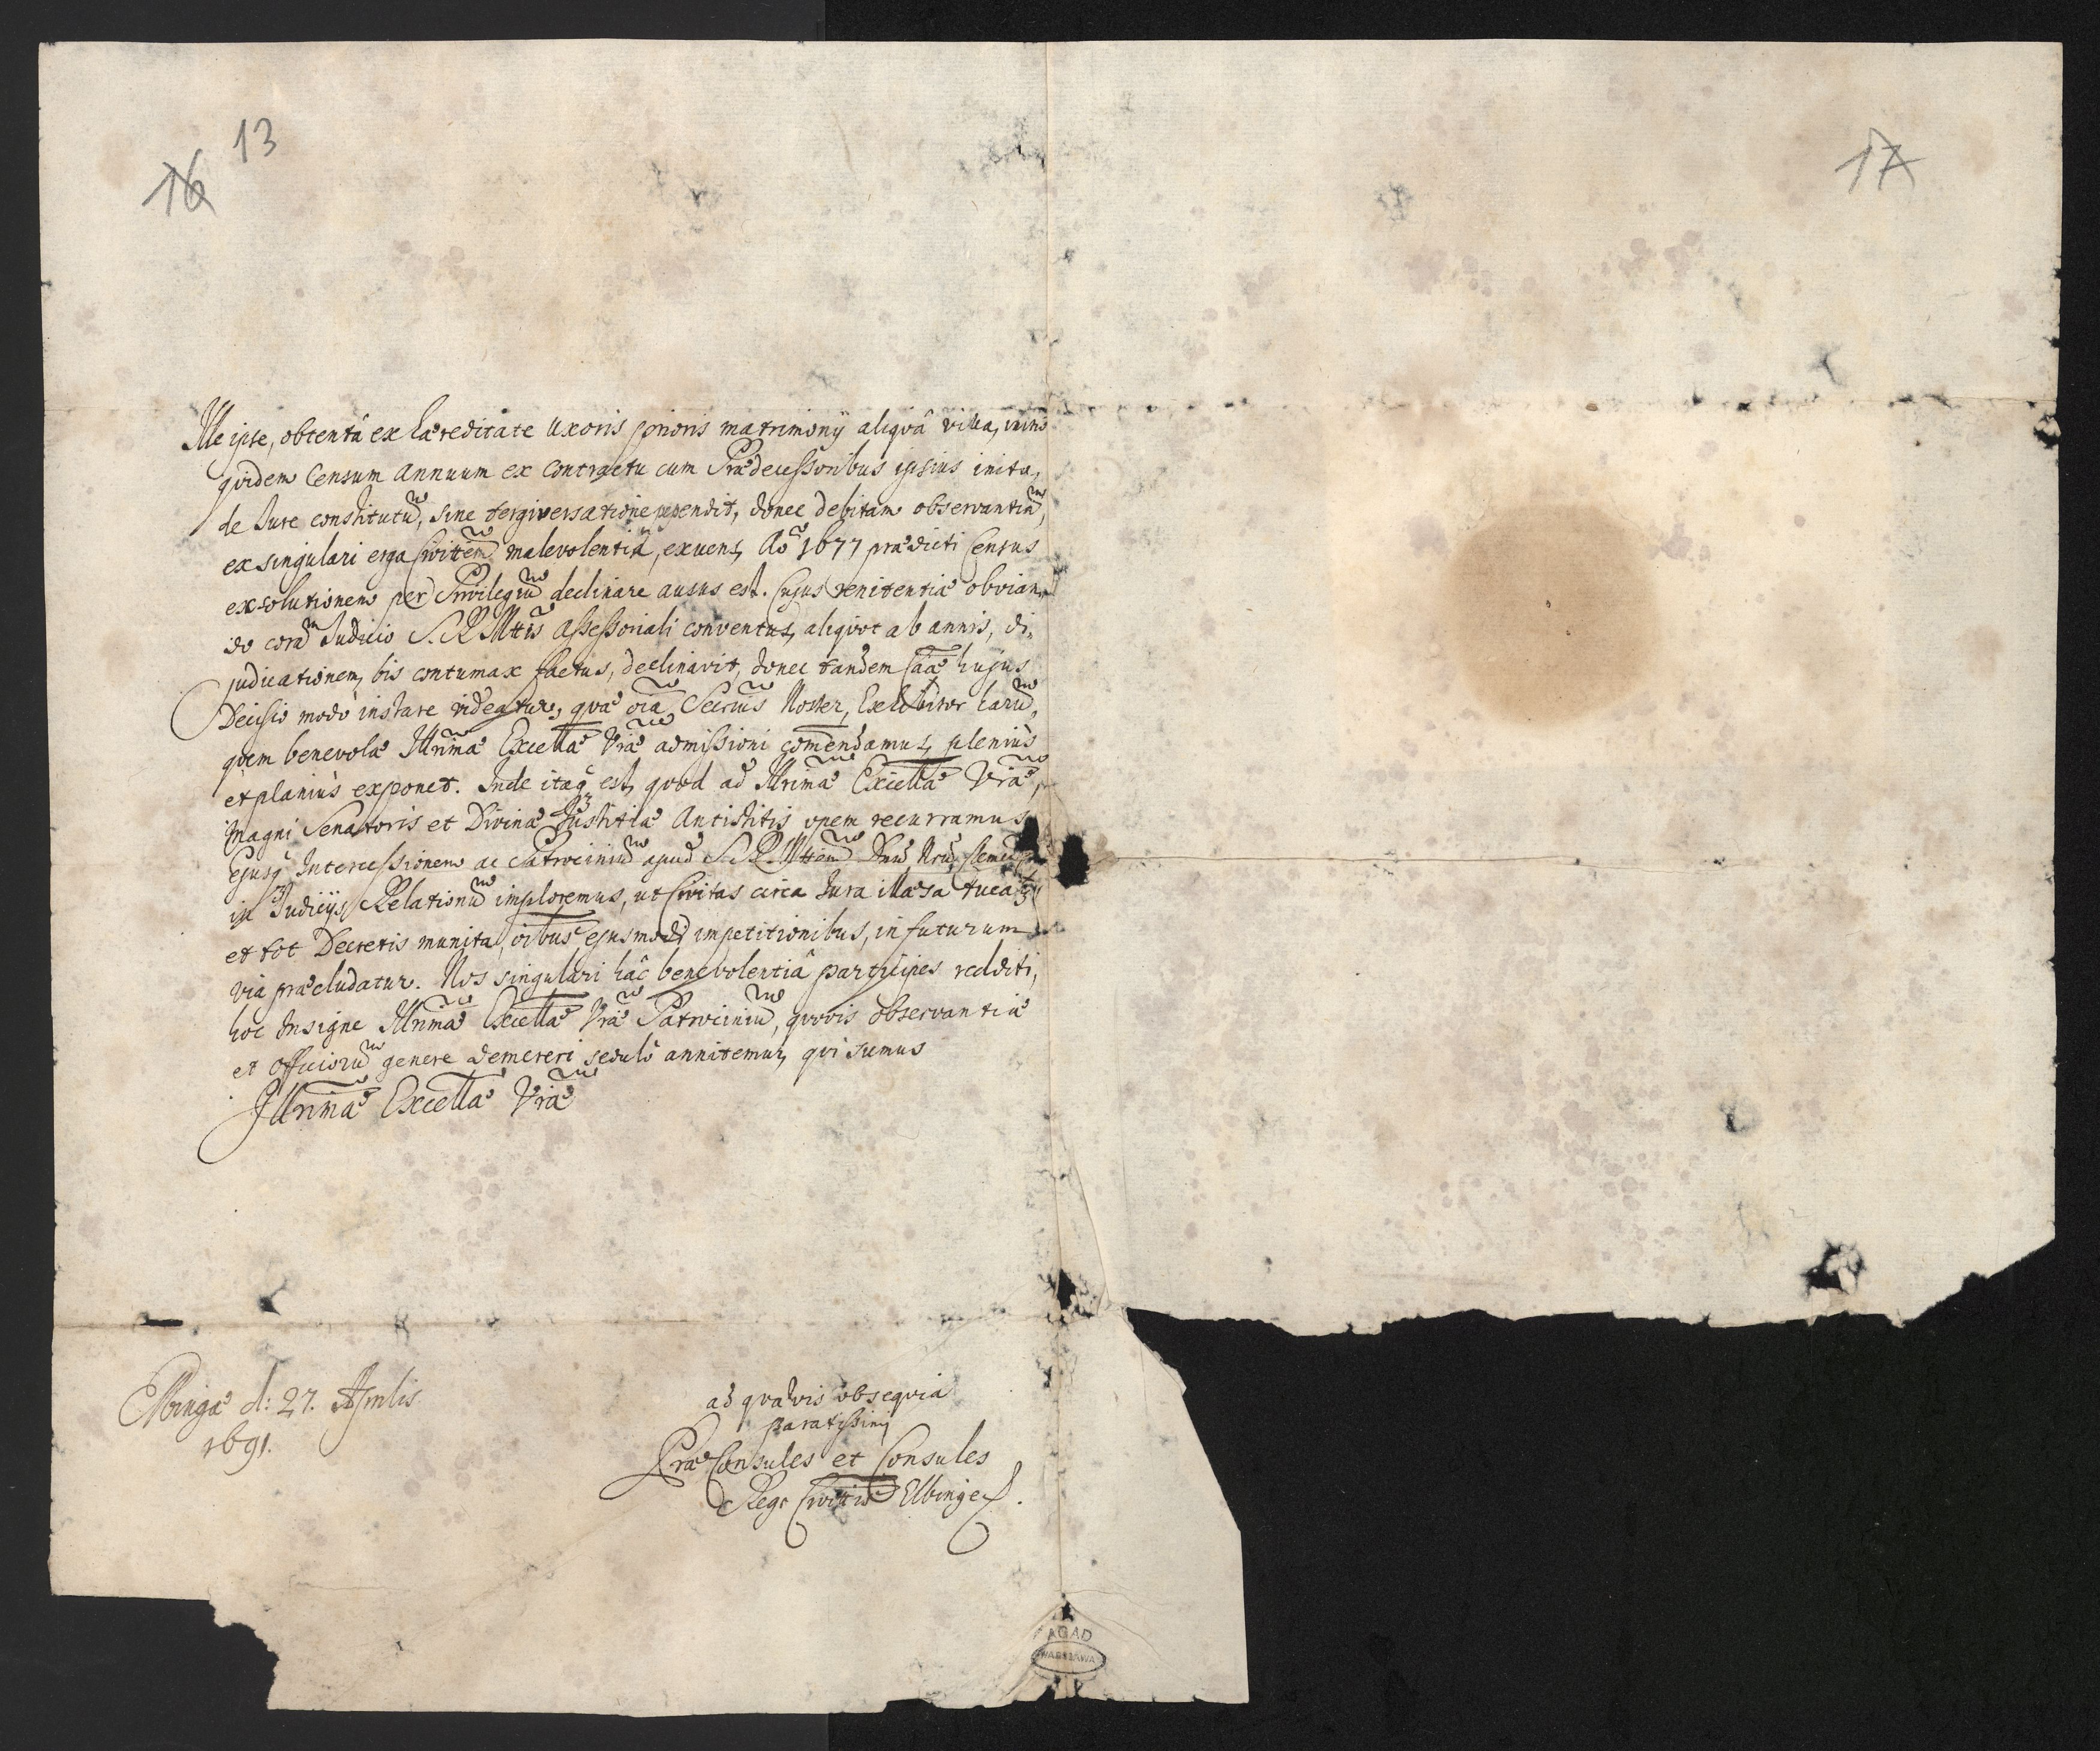 16 13
17
Ille ipse, obtentâ ex hæreditate Uxoris prioris matrimonij aliquâ villa,
quidem Censum Annuum ex Contractu cum Prædecessoribus ipsius inito,
de Jure constitutũ, sine tergiversatione pependit, donec debitam observantiã,
ex singulari erga Civittem malevolentiâ, exuens, Aõ 1677 prædicti Census
exsolutionem per Privilegiũ declinare ausus est. Cujus renitentiæ obvian„
do corã Judicio S. R. Mttis Assessoriali conventus, aliquot ab annis, di„
judicationem, bis contumax factus, declinavit, donec tandem Caãe hujus
Decisio modò instare videatur, quæ oĩa Secrius Noster, Exhibitor harũ,
quem benevolæ Illrimæ Excellæ Vræ admissioni comendamus, plenius
et planius exponet. Inde itaq est, quod ad Illrimæ Excellæ Vræ,
Magni Senatoris et Divinæ Justitiæ Antistitis opem recurramus
Ejusq Intercessionem ac Patrociniũ apud S. R. Mttem Dnũ Nrũ Clemen
in Judicijs Relationũ imploremus, ut Civitas circa Jura illæsa tueatur
et tot Decretis munita, oĩbus ejusmodi impetitionibus, in futurum
via præcludatur. Nos singulari hâc benevolentiâ participes redditi,
hoc Insigne Illrimæ Excellæ Vræ Patrociniũ, quovis observantiæ
et Officiorũ genere demereri sedulò annitemur, qui sumus
Illrimæ Excellæ Vræ
Elbingæ d: 27. Aprilis
1691.
ad quævis obsequia
paratissimi
PræConsules et Consules
Regæ Civittis Elbing
AGAD
WARSZAWA